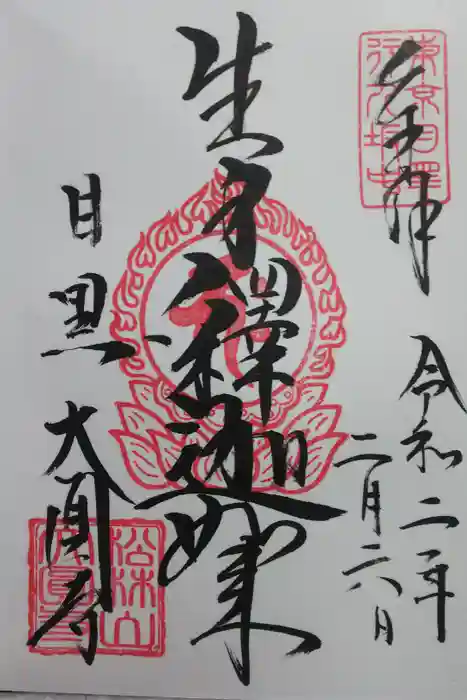 奉拝
令和二年
二月六日
生身釋迦如来
目黒 大圓寺
東京目黒
行人坂中
松林山
大圓寺